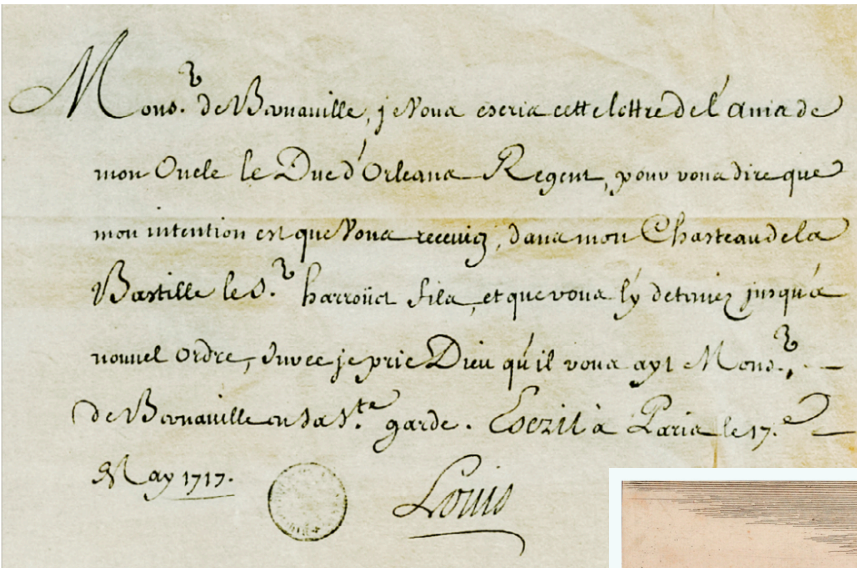 Mons.r de Bernaville, je Vous escris cette lettre de l'avis de
mon Oncle le Duc d'Orleans Regent, pour vous dire que
mon intention est que Vous receviez, dans mon Chasteau de la
Bastille le S.r harroüet fils, et que vous l'y deteniez jusqu'a
nouvel Ordre, Sur ce je prie Dieu qu'il vous ayt Mons.r
de Bernaville en sa S.te garde. Escrit à Paris le 17.e
May 1717.
Louis